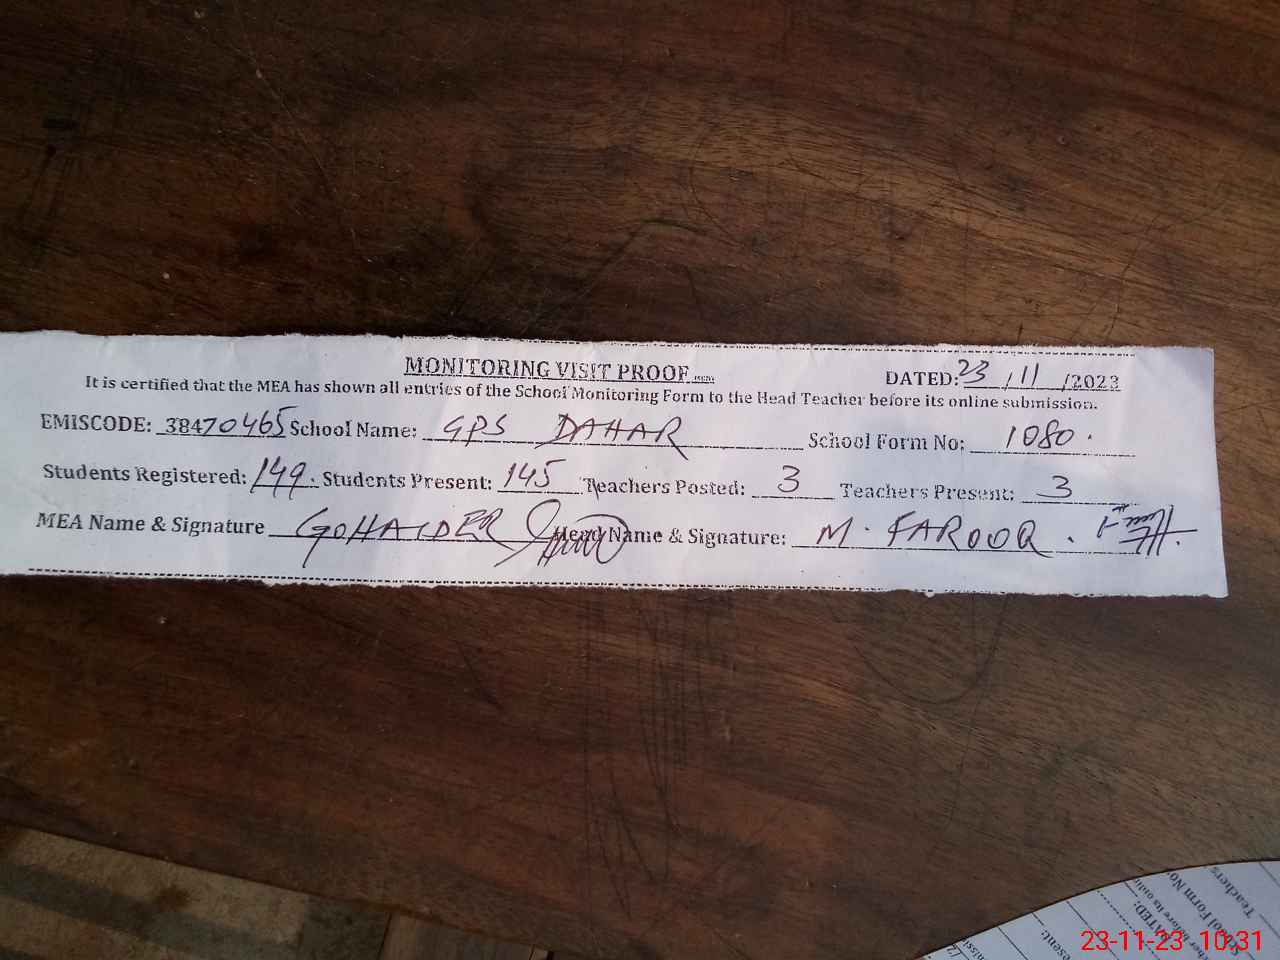 MONITORING VISIT PROOF
DATED: 23 /11 /2023
It is certified that the MEA has shown all entries of the School Monitoring Form to the Head Teacher before its online submission.
EMISCODE: 38470465 School Name: GPS DAHAR School Form No: 1080.
Students Registered: 149. Students Present: 145 Teachers Posted: 3 Teachers Present: 3
MEA Name & Signature GOHAIDER Head Name & Signature: M. FAROOQ.
DATED:
School Form No:
Teachers
23-11-23 10:31